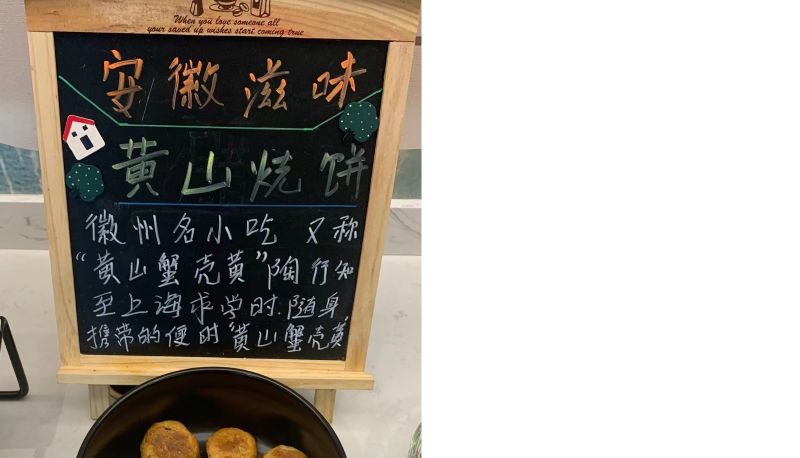 When you love someone all
your saved up wishes start coming true
安徽滋味
黄山烧饼
徽州名小吃 又称
“黄山蟹壳黄”陶行知
至上海求学时.随身
携带的便时“黄山蟹壳黄”